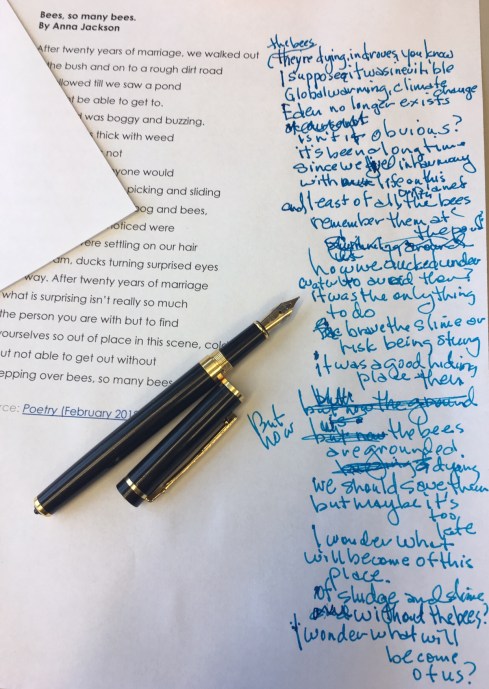 Bees, so many bees.
By Anna Jackson
After twenty years of marriage, we walked out
the bush and on to a rough dirt road
llowed till we saw a pond
t be able to get to.
was boggy and buzzing.
thick with weed
not
yone would
picking and sliding
og and bees,
oticed were
ere settling on our hair
am, ducks turning surprised eyes
way. After twenty years of marriage
what is surprising isn't really so much
the person you are with but to find
yourselves so out of place in this scene, col
ut not able to get out without
epping over bees, so many bees
rce: Poetry (February 201
the bees
(they're dying, in droves, you know
I suppose it was inevitible
Global warming, climate change
Eden no longer exists
isn't it obvious?
it's been a long time
since we lived in harmony
with life on this
planet
and least of all the bees
remember them at
the pond
how we ducked under
water to avoid them?
it was the only thing
to do
brave the slime or
risk being stung
it was a good hiding
place then
but now the ground
But
now
the bees
are grounded.
dying
we should save them
but maybe it's
too
late
I wonder what
will become of this
place.
of sludge and slime
without the bees?
I wonder what will
become
of us?